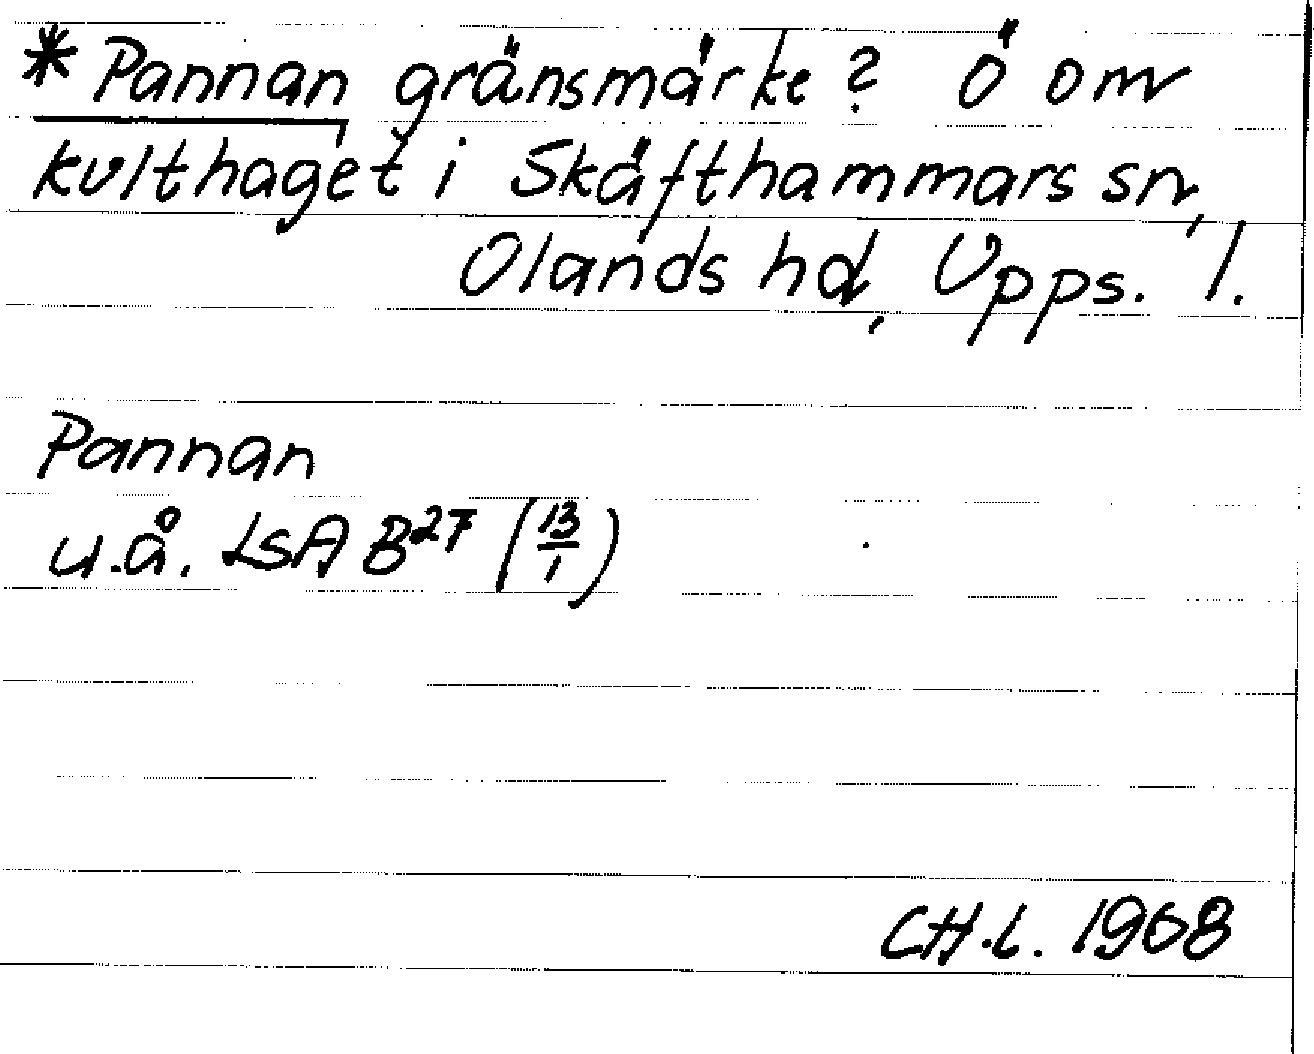 * Pannan gränsmärke? Ö om
kulthaget i Skäfthammars sn,
Olands hd, Upps. l.
Pannan
u.å. LSA B27 (13/1)
CH.L. 1968